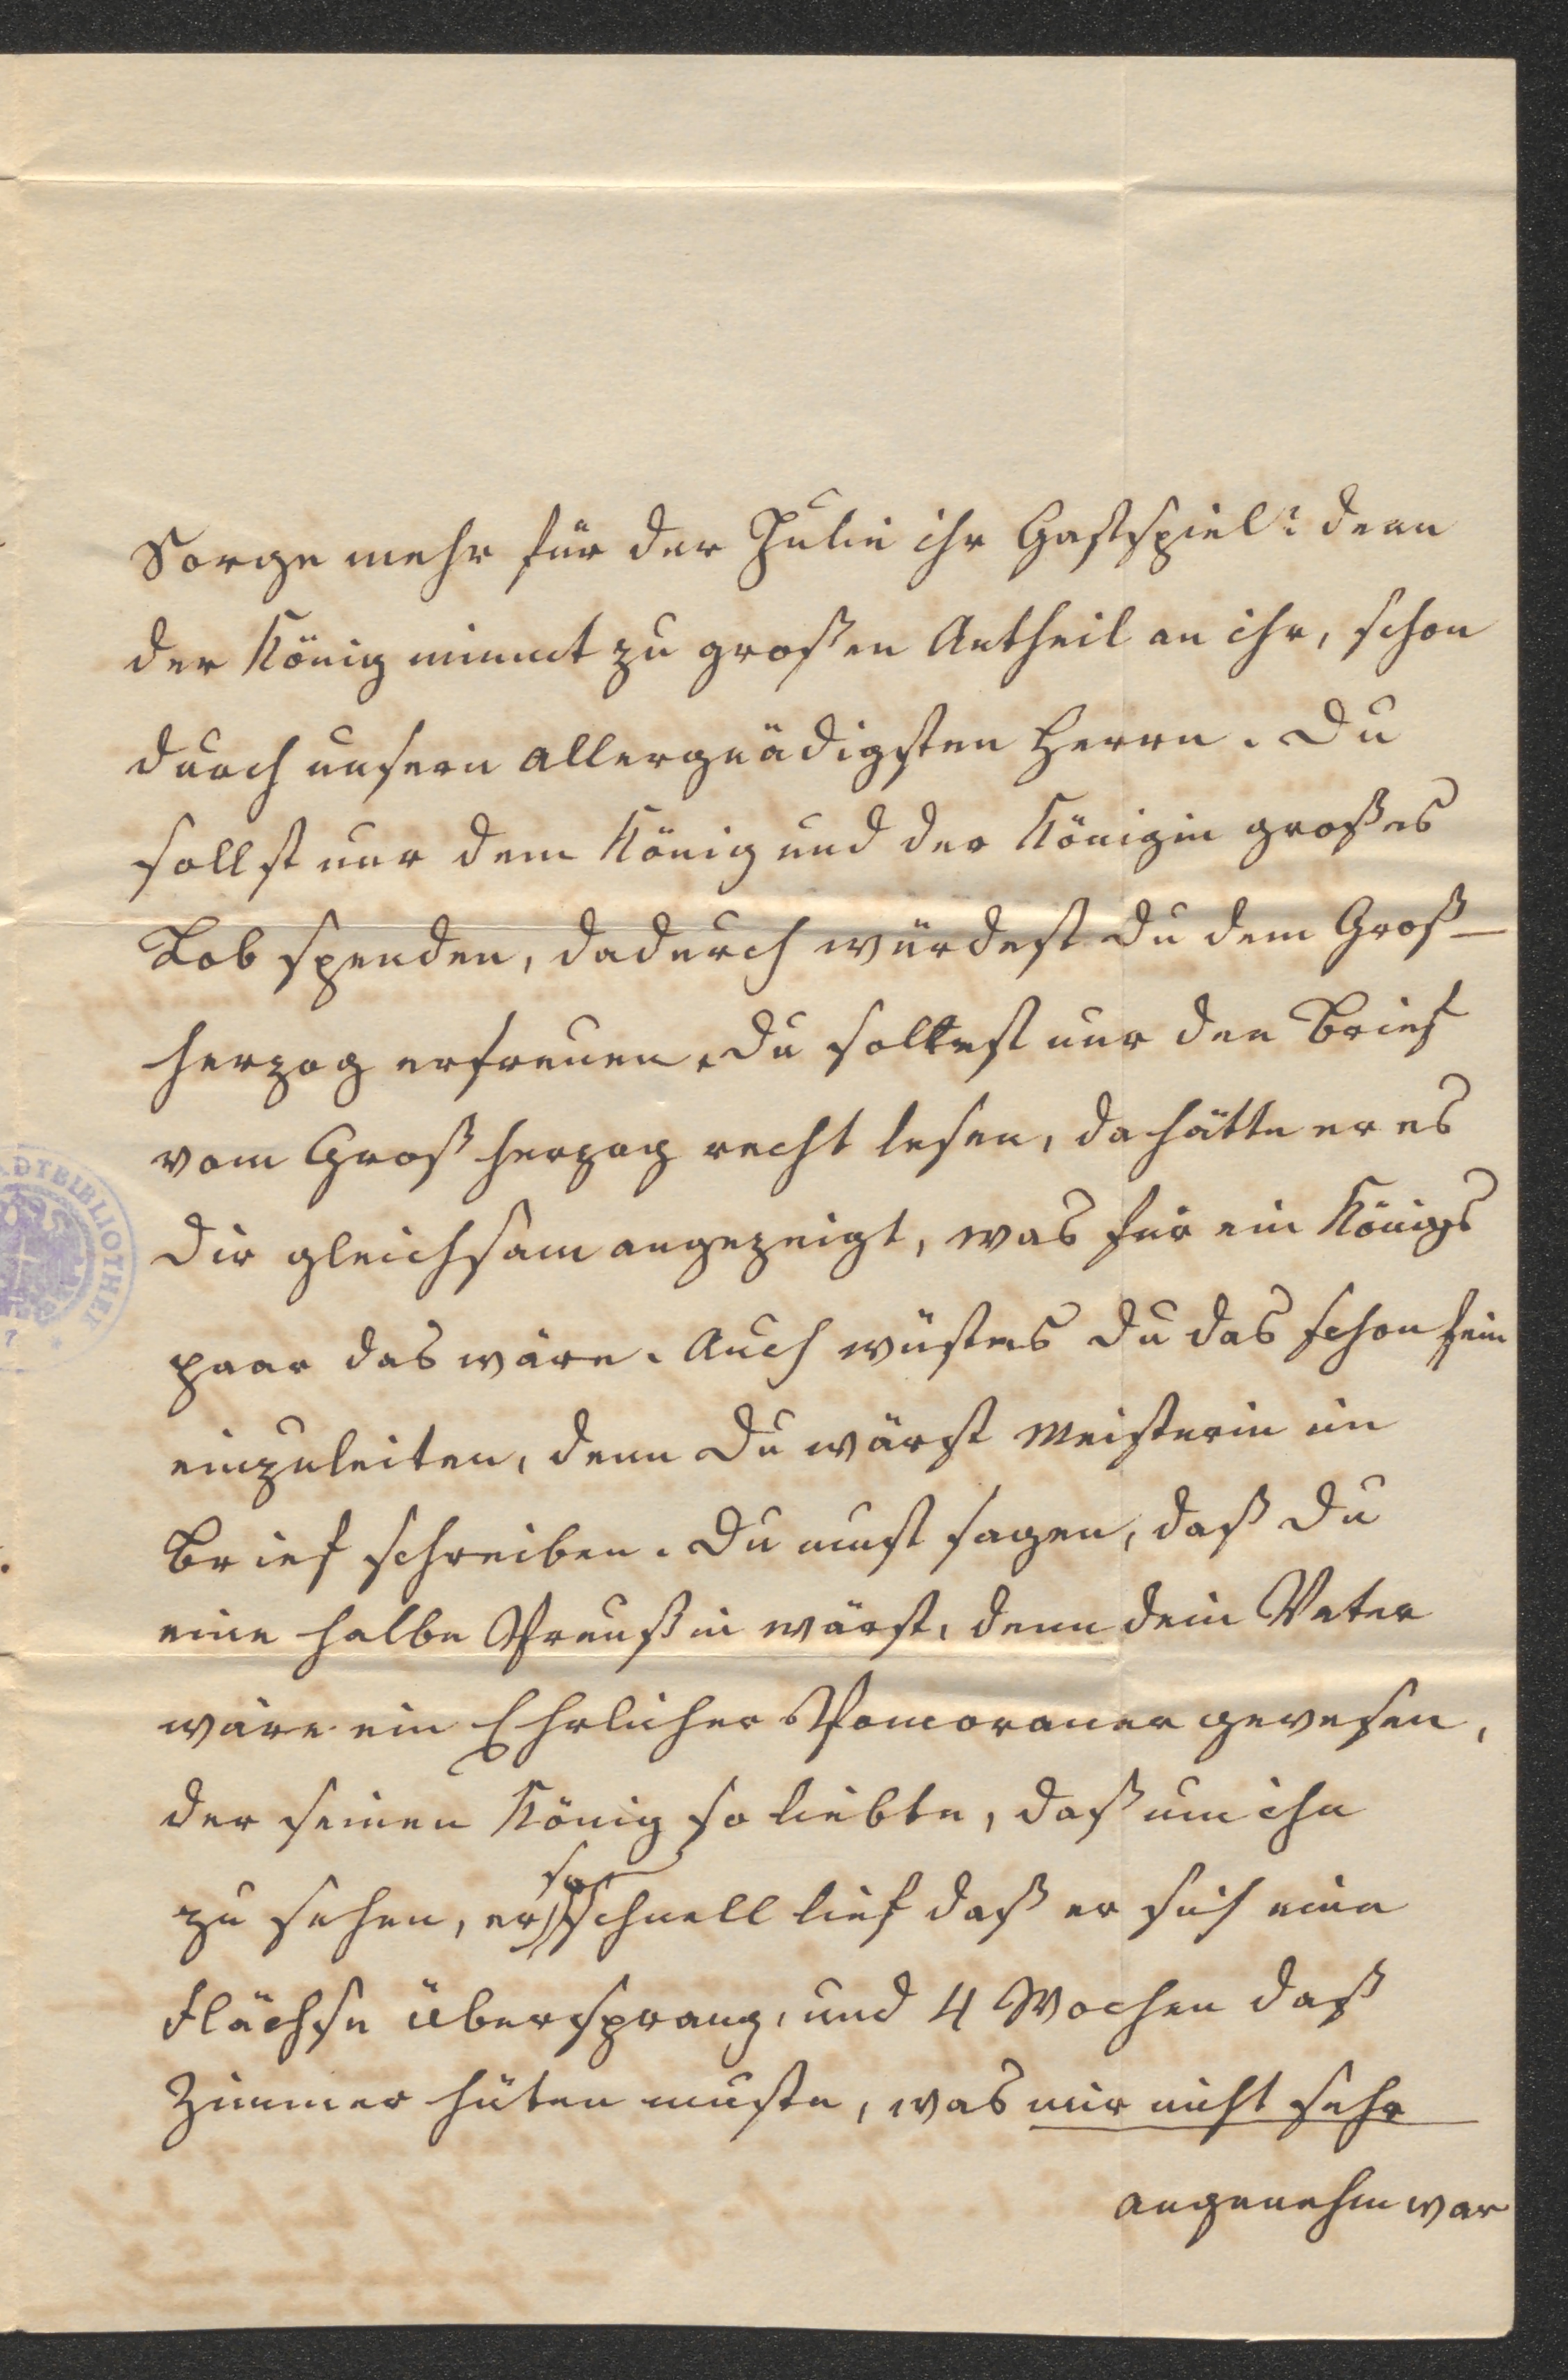 Sorge mehr für der Julie ihr Gastspiel: denn
der König nimmt zu großen Antheil an ihr, schon
durch unsern allergnädigsten Herrn. Du
sollst nur dem König und der Königin großes
Lob spenden, dadurch würdest Du dem Groß-
herzog erfreuen. Du solltest nur den Brief
vom Großherzog recht lesen, da hätte er es
Dir gleichsam angezeigt, was für ein Königs
paar das wäre. Auch wüstes Du das schon fein
einzuleiten, denn Du wärst Meisterin im
Brief schreiben. Du must sagen, daß Du
eine halbe Preußin wärst, denn dein Vater
wäre ein Ehrlicher Pomoraner gewesen,
der seinen König so liebte, daß um ihn
zu sehen, er so schnell lief daß er sich eine
Flächse übersprang, und 4 Wochen daß
Zimmer hüten muste, was mir nicht sehr
angenehm war
DTBIBLIOTHEK
7